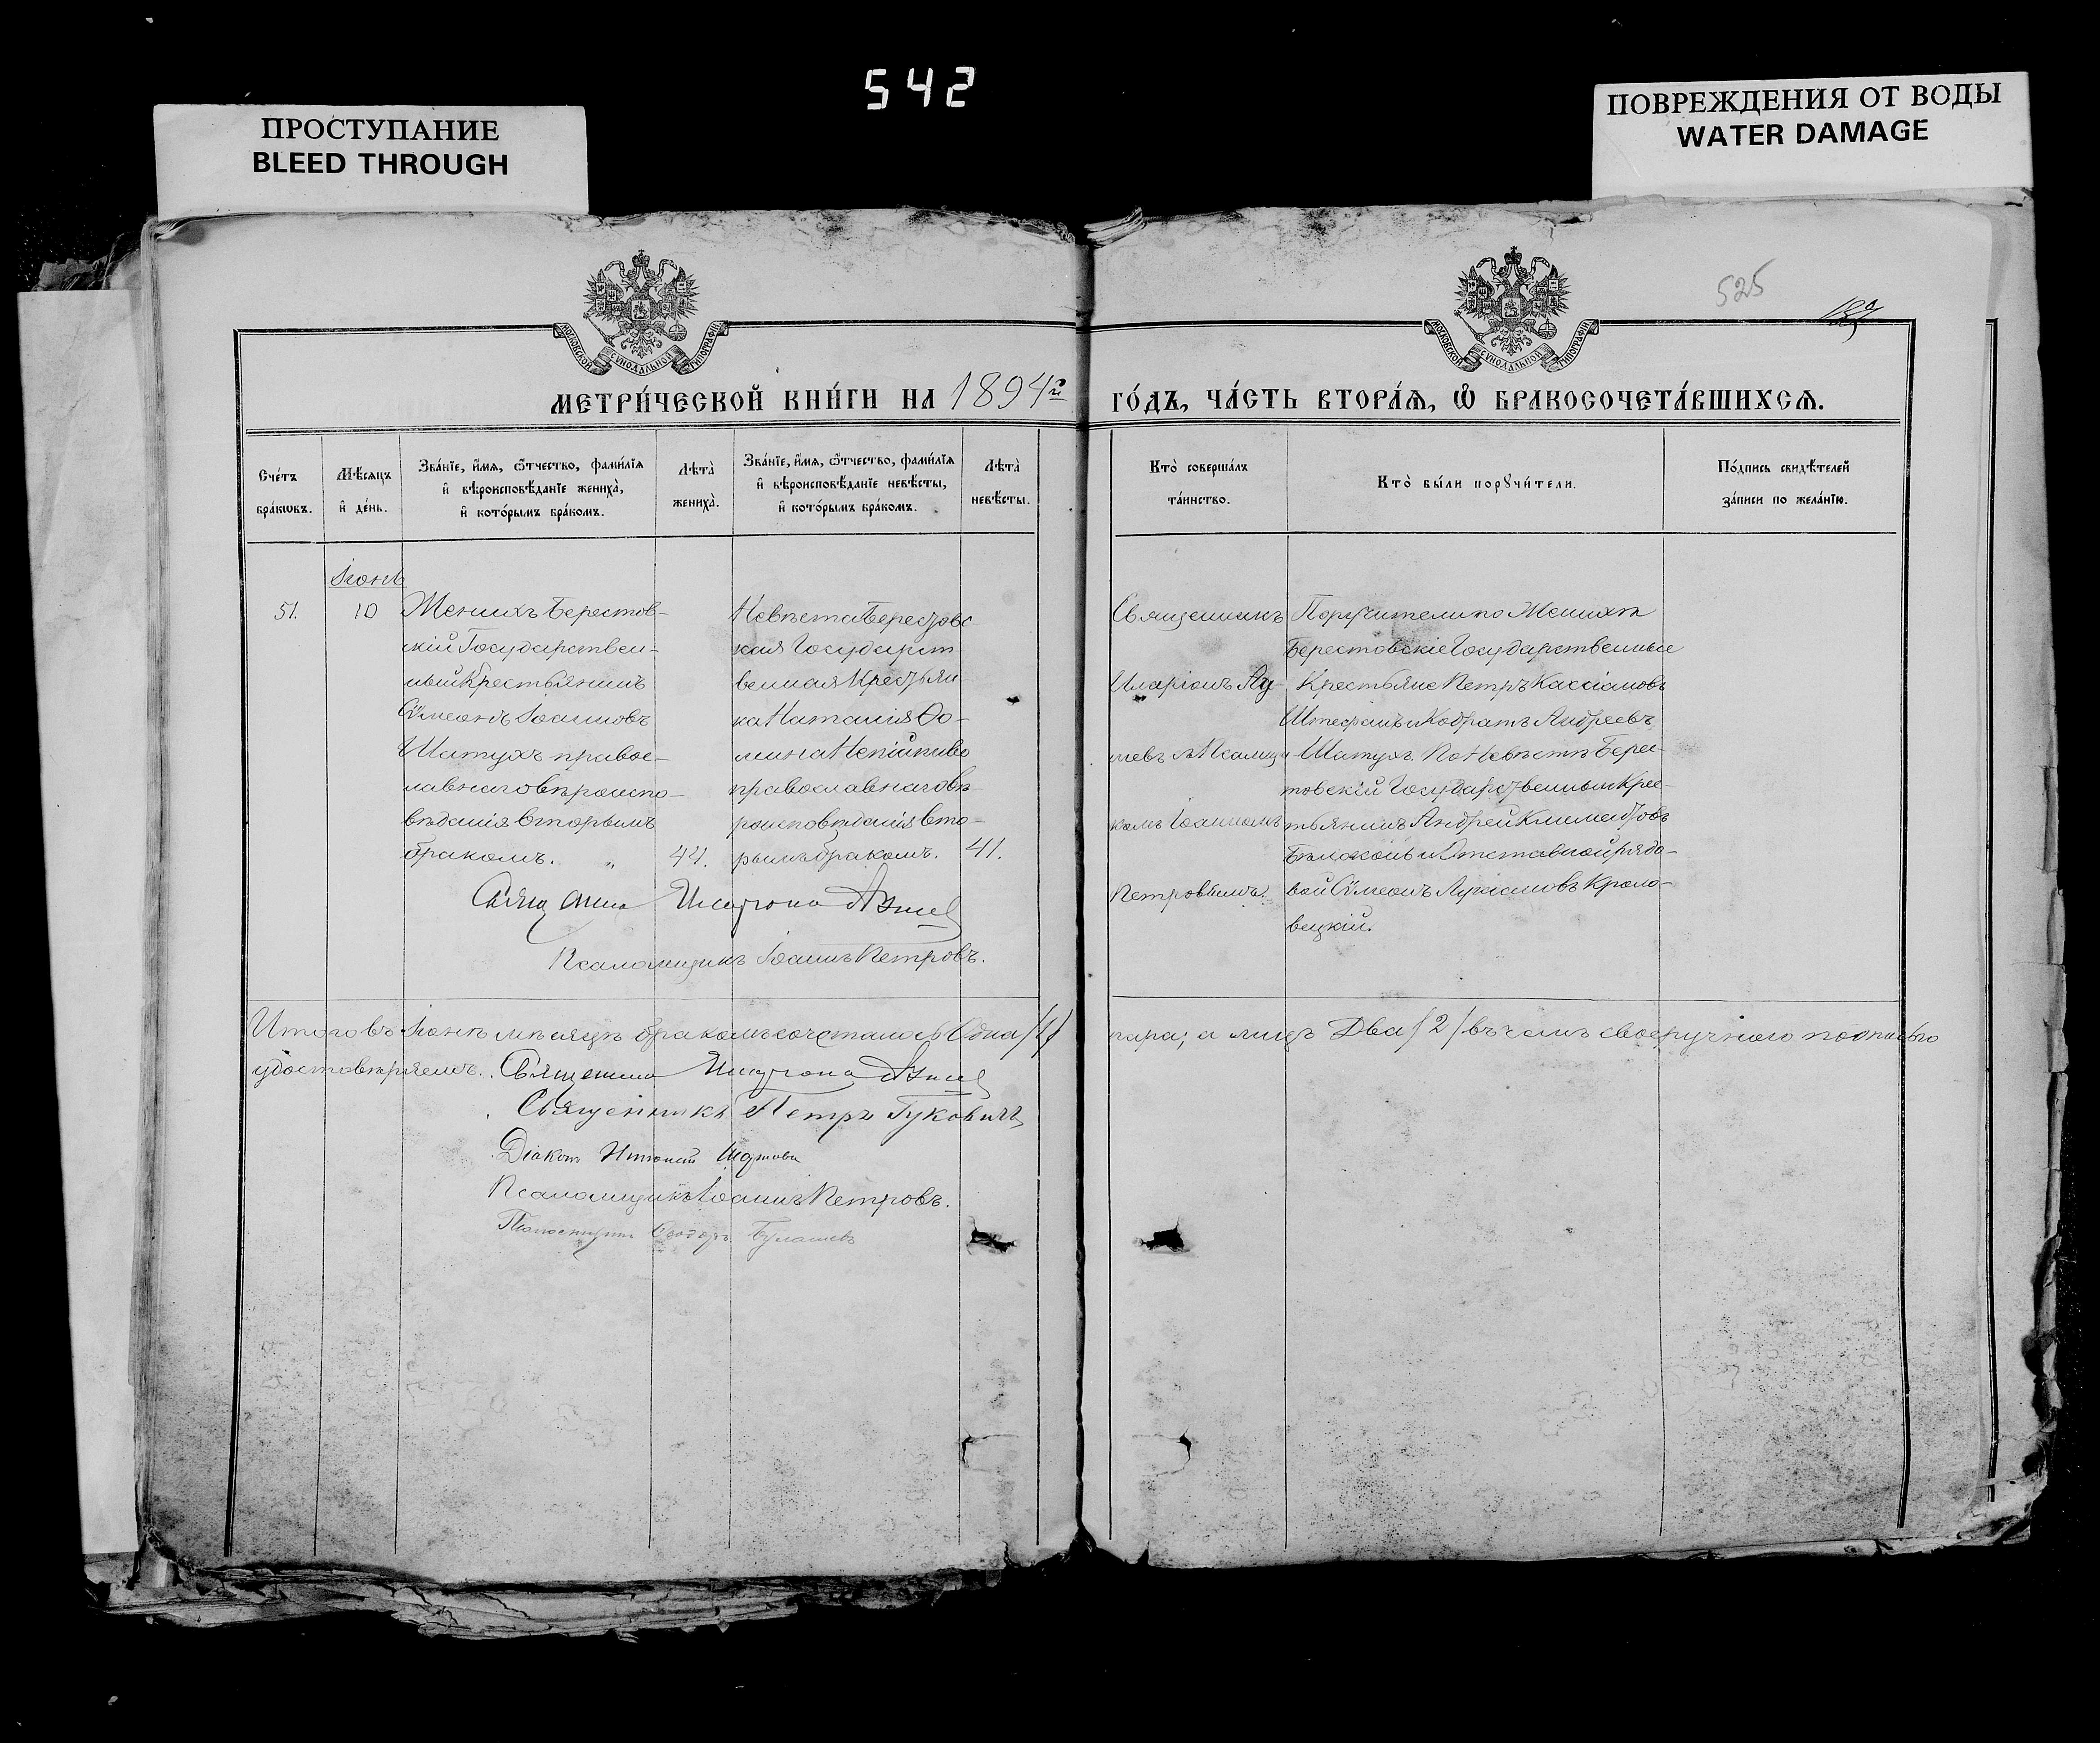 542
ПРОСТУПАНИЕ
BLEED THROUGH
ПОВРЕЖДЕНИЯ ОТ ВОДЫ
WATER DAMAGE
525
МОСКОВСКОЙ СѴНОДАЛЬНОЙ ТИПОГРАФІИ
МОСКОВСКОЙ СѴНОДАЛЬНОЙ ТИПОГРАФІИ
МЕТРИ́ЧЕСКОЙ КНИ́ГИ НА 1894й ГО́ДЪ, ЧА́СТЬ ВТОРА́Ѧ, Ѽ БРАКОСОЧЕТА́ВШИХСѦ.
Сче́тъ
бра́кѡвъ.
Мѣ́сяцъ
и де́нь.
Зва́нїе, и҆́мя, ѻ҆́тчество, фами́лїя
и вѣроисповѣ́данїе жениха̀,
и кото́рымъ бра́комъ.
Лѣта̀
жениха̀.
Зва́нїе, и҆́мя, ѻ҆́тчество, фами́лїя
и вѣроисповѣ́данїе невѣ́сты,
и кото́рымъ бра́комъ.
Лѣта̀
невѣ́сты.
Кто̀ соверша́лъ
та́инство.
Кто̀ бы́ли порꙋчи́тели.
По́дпись свидѣ́телей
за́писи по жела́нїю.
Іюнь
51.
10
Женихъ Берестов-
скій Государствен-
ный Крестьянинъ
Сѵмеонъ Іоанновъ
Шатухъ правос-
лавнаго вѣроиспо-
вѣданія вторымъ
бракомъ. „
44.
Невѣста Берестовс
кая Государст
венная Крестьян
ка Наталія Ѳо-
мина
православнаго вѣ-
роисповѣданія вто-
рымъ бракомъ.
41.
Священникъ
Иларіонъ
шевъ съ Псаломщи
комъ Іоанномъ
Петровымъ.
Поручители по Женихѣ
Берестовскіе Государственные
Крестьяне Петръ Кассіановъ
Штефанъ и Кодратъ Андреевъ
Шатухъ. По Невѣстѣ Берес-
товскій Государственный Крес-
тьянинъ Андрей Климентовъ
и Отставной рядо-
вой Сѵмеонъ Лукіановъ Кроло-
вецкій.
Псаломщикъ Іоаннъ Петровъ.
Итого въ Іюнѣ мѣсяцѣ бракомъ сочеталось Одна /1/ пара; а лицъ Два /2/ въ чемъ своеручною подписью
удостовѣряемъ.
Священникъ Петръ Гукович
Діаконъ
Псаломщикъ Іоаннъ Петровъ.
Ѳеодоръ